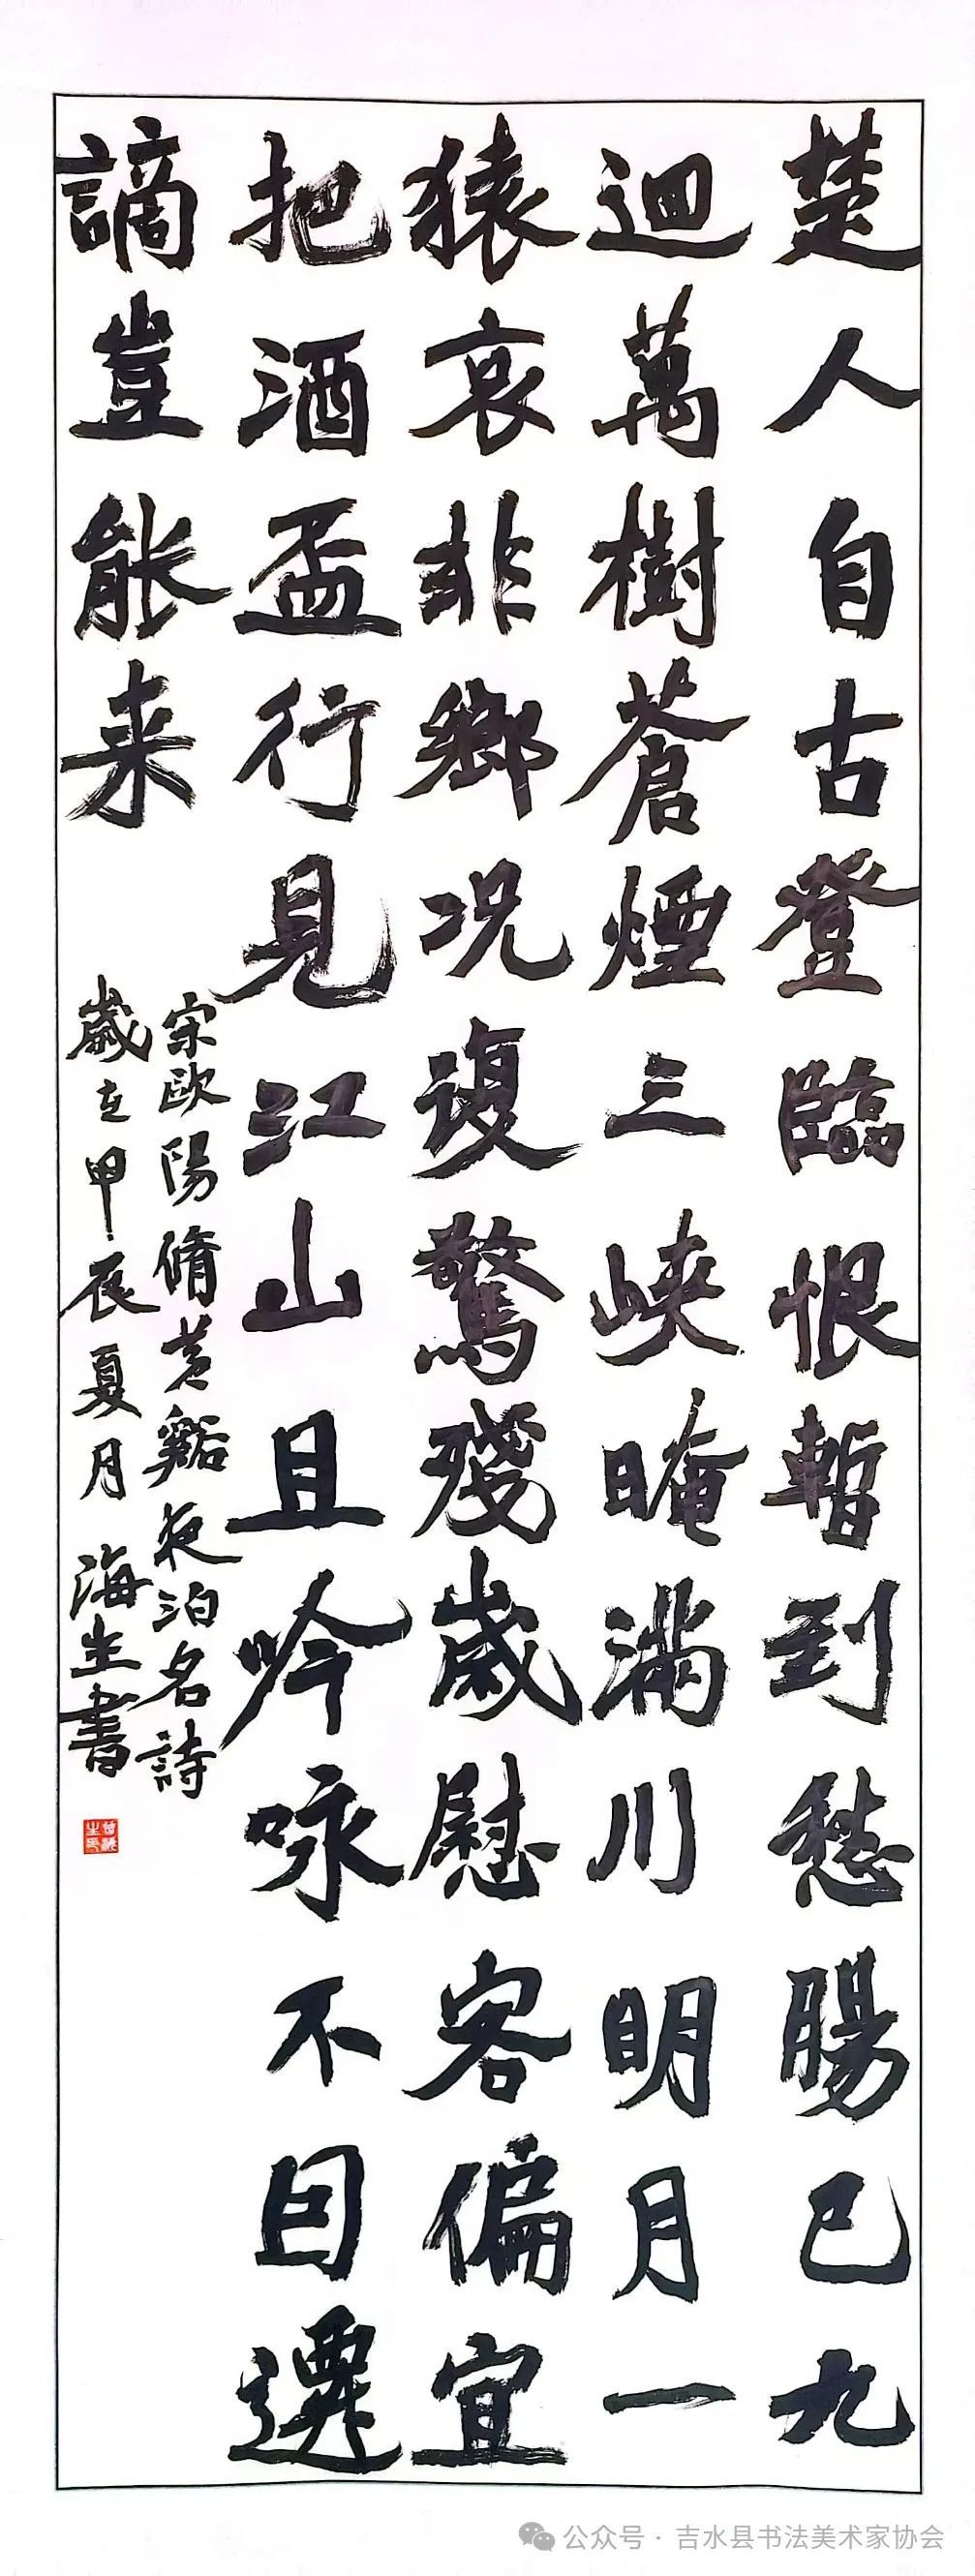 楚人自古登臨恨暫到愁腸已九
迴萬樹蒼煙三峽晻滿川明月一
猿哀非鄉况復驚殘歲慰客偏宜
把酒盃行見江山且吟咏不因遷
謫豈能来
宋歐陽脩黄谿夜泊名詩
歲在甲辰夏月 海生書
公众号 · 吉水县书法美术家协会